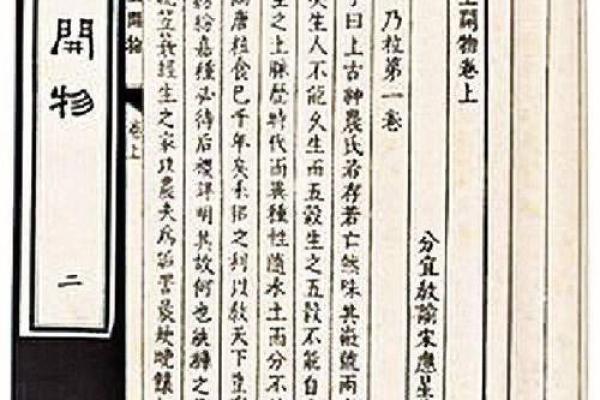 工開物卷上
分宜教諭宋應星
乃粒第一卷
子曰上古神農氏若存若亡然味其徽號兩
矣生人不能久生而五穀生之五穀不能自
生之上脉歷時代而異種性隨水土而分不
陶唐粒食已千年矣耒耜之利以教天下豈
紛嘉種必待后稷詳明其故何也紈褲之
笠蓑經生之家以農夫為詬詈晨炊晚饟
開物
卷上
開物
二